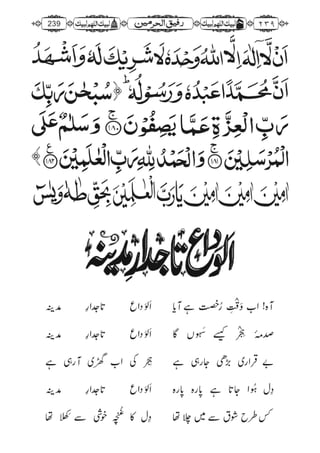 239 لبیك اللهم لبیك رفیق الحرمین لبیك اللهم لبیك ۲۳۹
اَنْ لَّاۤ اِلٰهَ اِلَّا اللهُ وَحْدَهٗ لَا شَرِیْكَ لَهٗ وَاَشْهَدُ
اَنَّ مُحَمَّدًا عَبْدُهٗ وَرَسُوْلُهٗ ؕ ﴿ سُبْحٰنَ رَبِّكَ
رَبِّ الْعِزَّةِ عَمَّا یَصِفُوْنَ ۚ﴿۱۸۰﴾ وَ سَلٰمٌ عَلَی
الْمُرْسَلِیْنَ ۚ﴿۱۸۱﴾ وَالْحَمْدُ لِلّٰهِ رَبِّ الْعٰلَمِیْنَ ﴿۱۸۲﴾ ﴾
اٰمِیْن اٰمِیْن اٰمِیْن یَارَبَّ الْعٰلَمِیْنَ بِحَقِّ طٰهٰ وَیٰسٓ
الوداع تاجدار مدینہ
آہ! اب وَقْتِ رُخصت ہے آیا اَلْوَداع تاجدارِ مدینہ
صدمۂ ہِجْر کیسے سَہوں گا اَلْوَداع تاجدارِ مدینہ
بے قراری بڑھی جارہی ہے ہِجْر کی اب گھڑی آرہی ہے
دل ہُوا جاتا ہے پارہ پارہ اَلْوَداع تاجدارِ مدینہ
کس طرح شوق سے میں چلا تھا دل کا غُنْچَہ خوشی سے کِھلا تھا